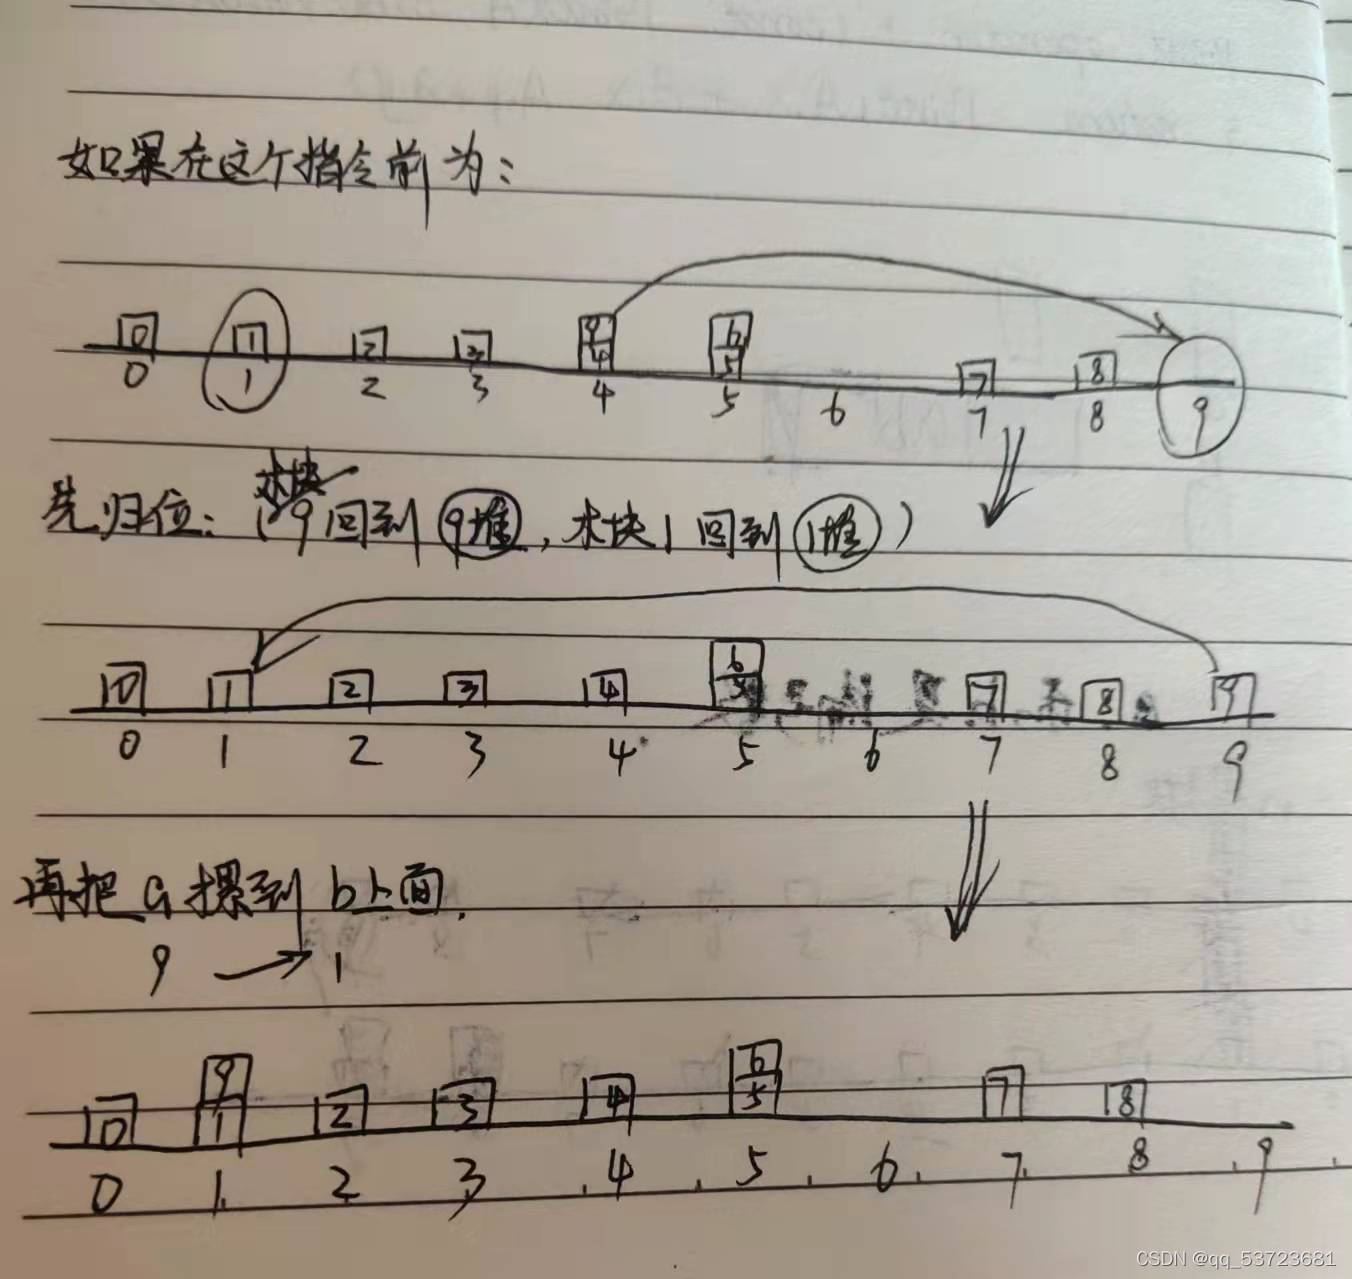 如果在这个指令前为：
0 1 2 3 9 4 6 5 7 8
0 1 2 3 4 5 6 7 8 9
先归位：（木块9回到9堆，木块1回到1堆）
0 1 2 3 4 6 5 7 8 9
0 1 2 3 4 5 6 7 8 9
再把a摞到b上面.
9 → 1
0 9 1 2 3 4 6 5 7 8
0 1 2 3 4 5 6 7 8 9
CSDN @qq_53723681